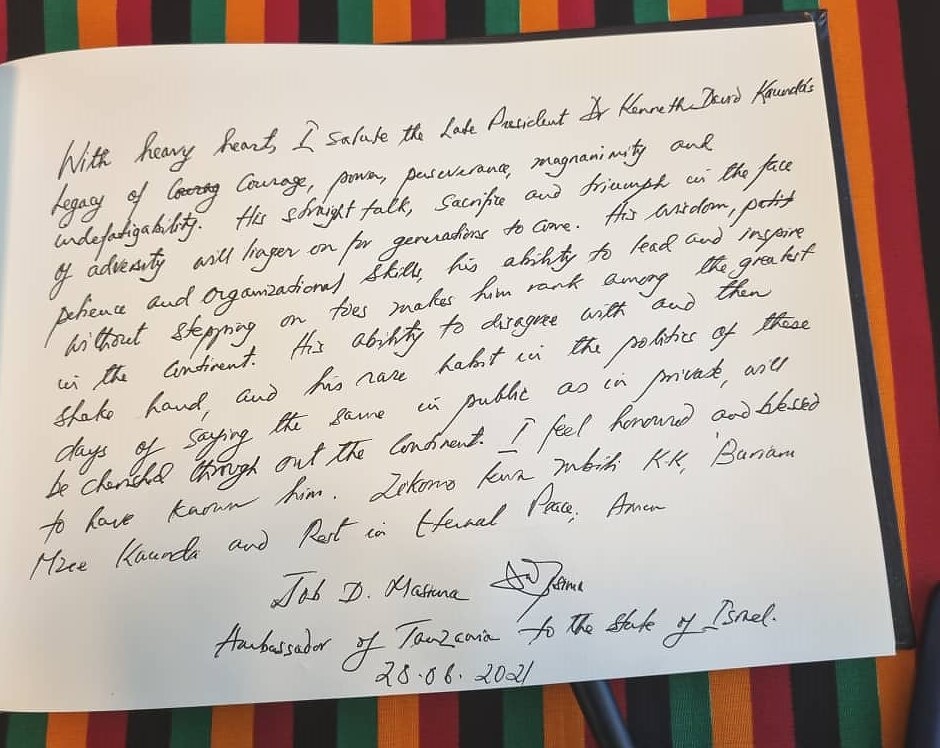 With heavy heart, I salute the Late President Dr Kenneth David Kaunda's
Legacy of Courag Courage, power, perseverance, magnanimity and
undefatigability. His straight talk, sacrifice and triumph in the face
of adversity will linger on for generations to come. His wisdom, patit
patience and organizational skills, his ability to lead and inspire
without stepping on toes makes him rank among the greatest
in the Continent. His ability to disagree with and then
shake hand, and his rare habit in the politics of these
days of saying the same in public as in private, will
be cherished through out the Continent. I feel honoured and blessed
to have known him. Zikomo kwa mbiri K.K, Buriani
Mzee Kaunda and Rest in Eternal Peace, Amen
Job D. Masima
Ambassador of Tanzania to the State of Israel.
28.06.2021